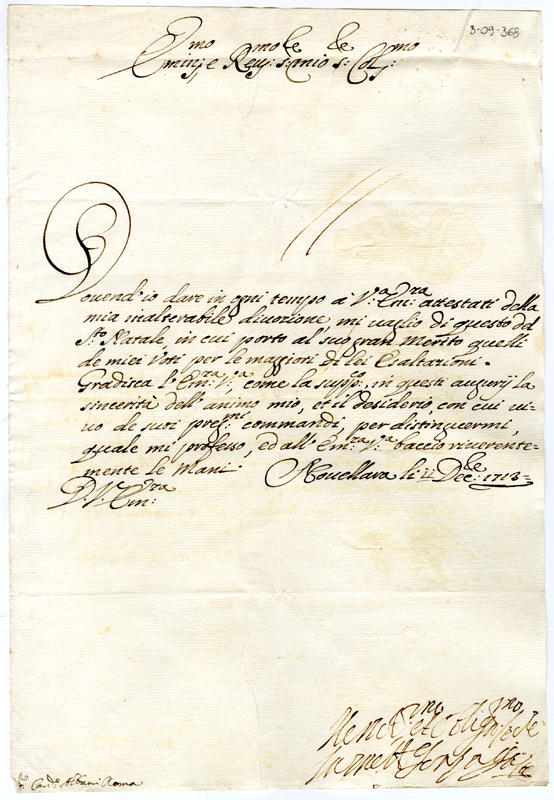 3-09-368
Emin:mo e Rev:mo Sig:le mio Sig:le Col:mo
Dovend'io dare in ogni tempo à V:a Em:ra attestati della
mia inalterabile divozione, mi vaglio di questo del
S:to Natale, in cui porto al suo gran Merito quelli
de miei Voti per le maggiori di lei Esaltazioni.
Gradisca l'Em:ra V:a, come la supp:co, in questi augurij la
sincerità dell'animo mio, et il desiderio, con cui vi-
vo de suoi preg:mi commandi, per distinguermi,
quale mi professo, ed all'Em:ra V:a baccio riverente-
mente le Mani. Novellara li Dec:le 1713
D: V: Em:ra
Card:l Albani Roma